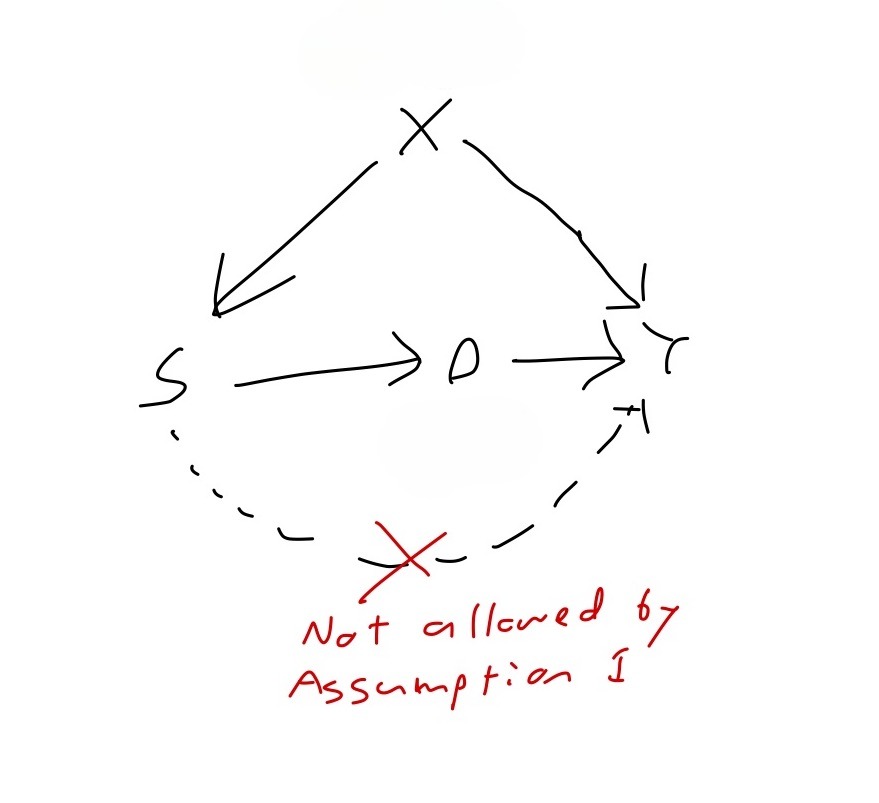 X
S D Y
Not allowed by
Assumption I